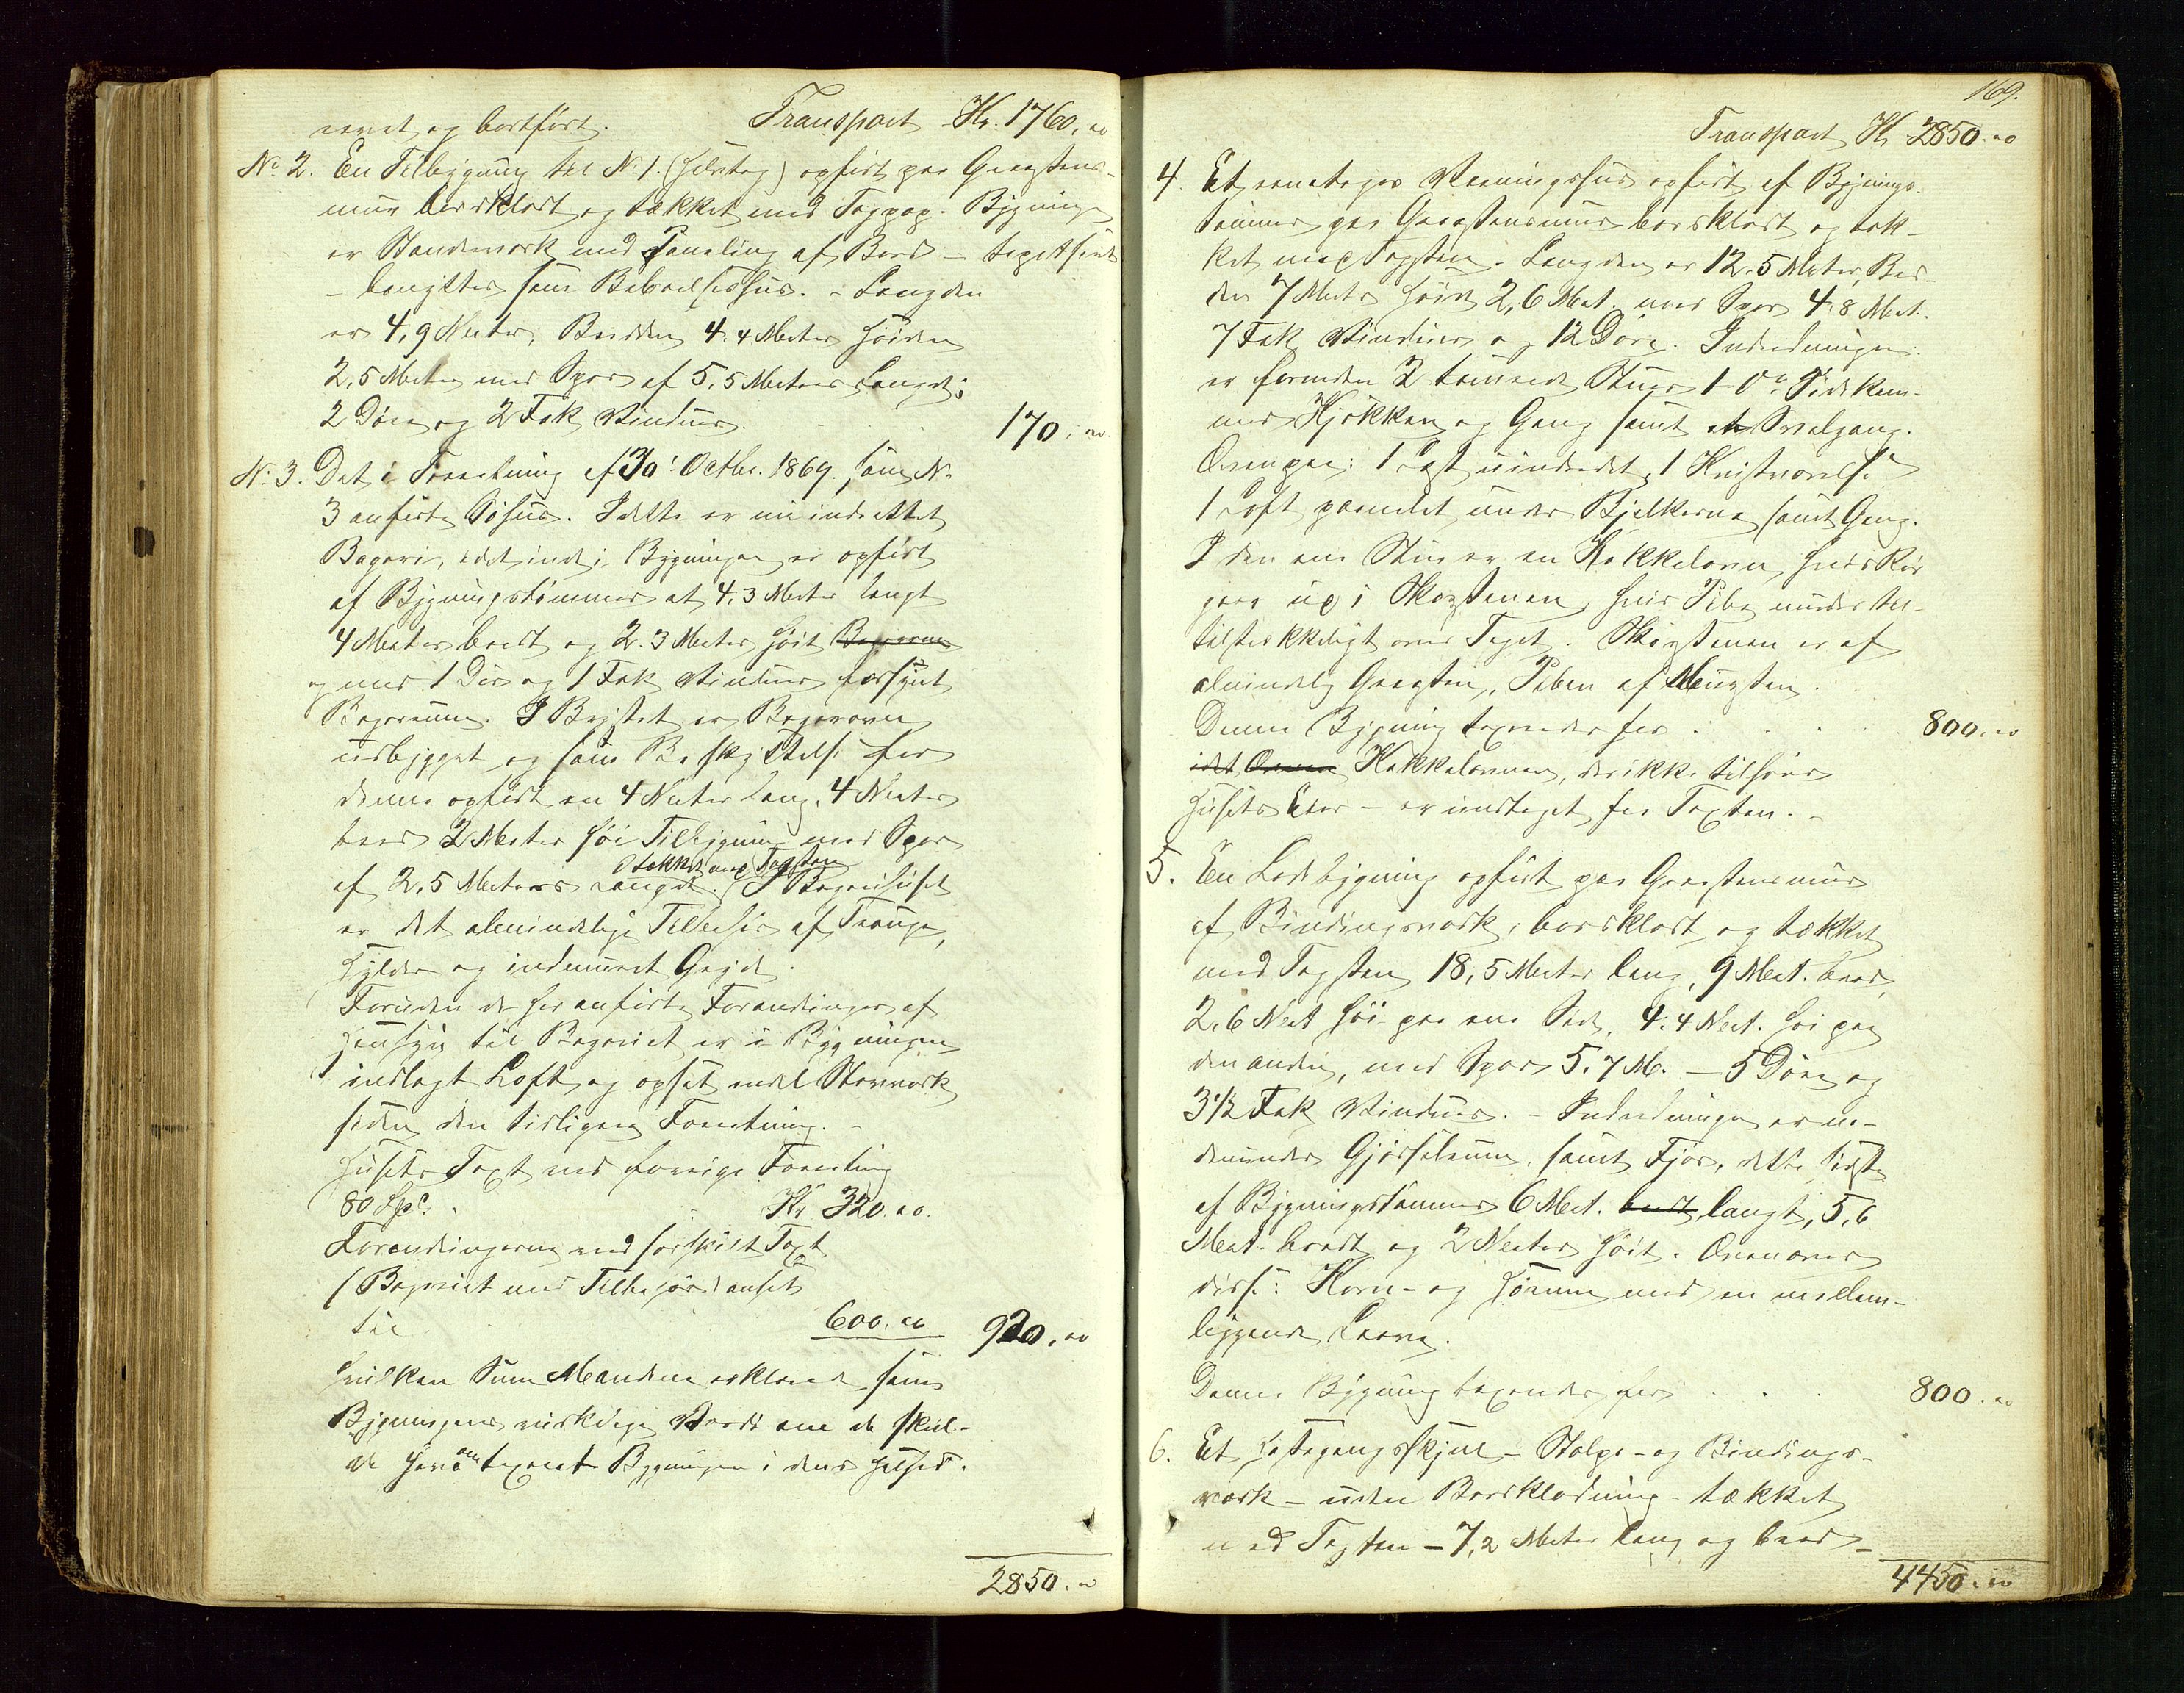 revet og bortført. Transport Kr. 1760,00
No. 2. En Tilbygning til No. 1. (Halvtag) opført paa Graastens-
mur bordklædt og tækket med Tagpap. Bygningen
er Standværk med Paneling af Bord – tapetseret
– benyttes som Beboelseshus. – Længden
er 4,9 Meter, Bredden 4,4 Meter Høiden
2,5 Meter med Spær af 5,5 Meters Længde;
2 Døre og 2 Fak Vinduer. 170,00
No. 3. Det i Forretning af 30' Octbr. 1869 som No.
3 anførte Søhus. I dette er nu indrettet
Bageri, idet inde i Bygningen er opført
af Bygningstømmer et 4,3 Meter langt
4 Meter bredt og 2,3 Meter høit Bagerrum
og med 1 Dør og 1 Fak Vinduer forsynt
Bagerrum. I Brystet er Bagerovn
udbygget og som Beskyttelse for
denne opført en 4 Meter lang, 4 Meter
bred 2 Meter høi Tilbygning med Spær
tækket med Tagsten
af 2,5 Meters Længde. I Bagerihuset
er det almindelige Tilbehør af Trouge,
Hylder og indmuret Gryde.
Foruden de her anførte Forandringer af
Hensyn til Bageriet er i Bygningen
indlagt Loft og opsat endel Staværk
siden den tidligere Forretning. –
Husets Taxt ved forrige Forretning
80 Spd. Kr 320.00.
Forandringerne ved særskilt Taxt
(Bageriet med Tilbehør) ansat
til 600.00 920,00
hvilken Sum Mændene erklærede som
Bygningens virkelige Værdi om de skul-
de have omtaxeret Bygningen i dens Helhed.
2850.00
169.
Transport Kr 2850.00
4. Et eenetages Vaaningshus opført af Bygnings-
tømmer paa Graastensmur bordklædt og tæk-
ket med Tagsten. Længden er 12.5 Meter, Bred-
den 7 Meter Høide 2,6 Met. med Spær 4.8 Met.
7 Fak Vinduer og 12 Døre. Indredningen
er forneden 2 tømrede Stuer 1 do Sidekam-
mer Kjøkken og Gang samt en Svalgang.
Ovenpaa: 1 Loft uindredet, 1 Kvistværelse
1 Loft panelet under Bjelkerne samt Gang.
I den ene Stue er en Kakkelovn, hvis Rør
gaar ud i Skorstenen, hvis Pibe munder til-
tilstrækkeligt over Taget. Skorstenen er af
almindelig Graasten, Piben af Mursten.
Denne Bygning taxeredes for 800.00
idet Ovnen Kakkelovnen, der ikke tilhører
Husets Eier – er undtaget fra Taxten. –
5. En Ladebygning opført paa Graastensmur
af Bindingsværk, bordklædt og tækket
med Tagsten 18,5 Meter lang, 9 Met. bred,
2.6 Met høi paa ene Side, 4.4 Met. høi paa
den anden, med Spær 5.7 M. – 5 Døre og
3 1/2 Fak Vinduer. – Indredningen er ne-
denunder Gjødselrum, samt Fjøs, dette sidste
af Bygningstømmer 6 Met. bredt langt, 5,6
Met. bredt og 2 Meter høit. Ovenover
disse: Korn- og Hørum med en mellem-
liggende Laave.
Denne Bygning taxeredes for 800.00
6. Et Hestegangsskjul – Stolpe- og Bindings-
værk – uden Bordklædning – tækket
med Tagsten – 7,2 Meter lang og bred –
4450.00